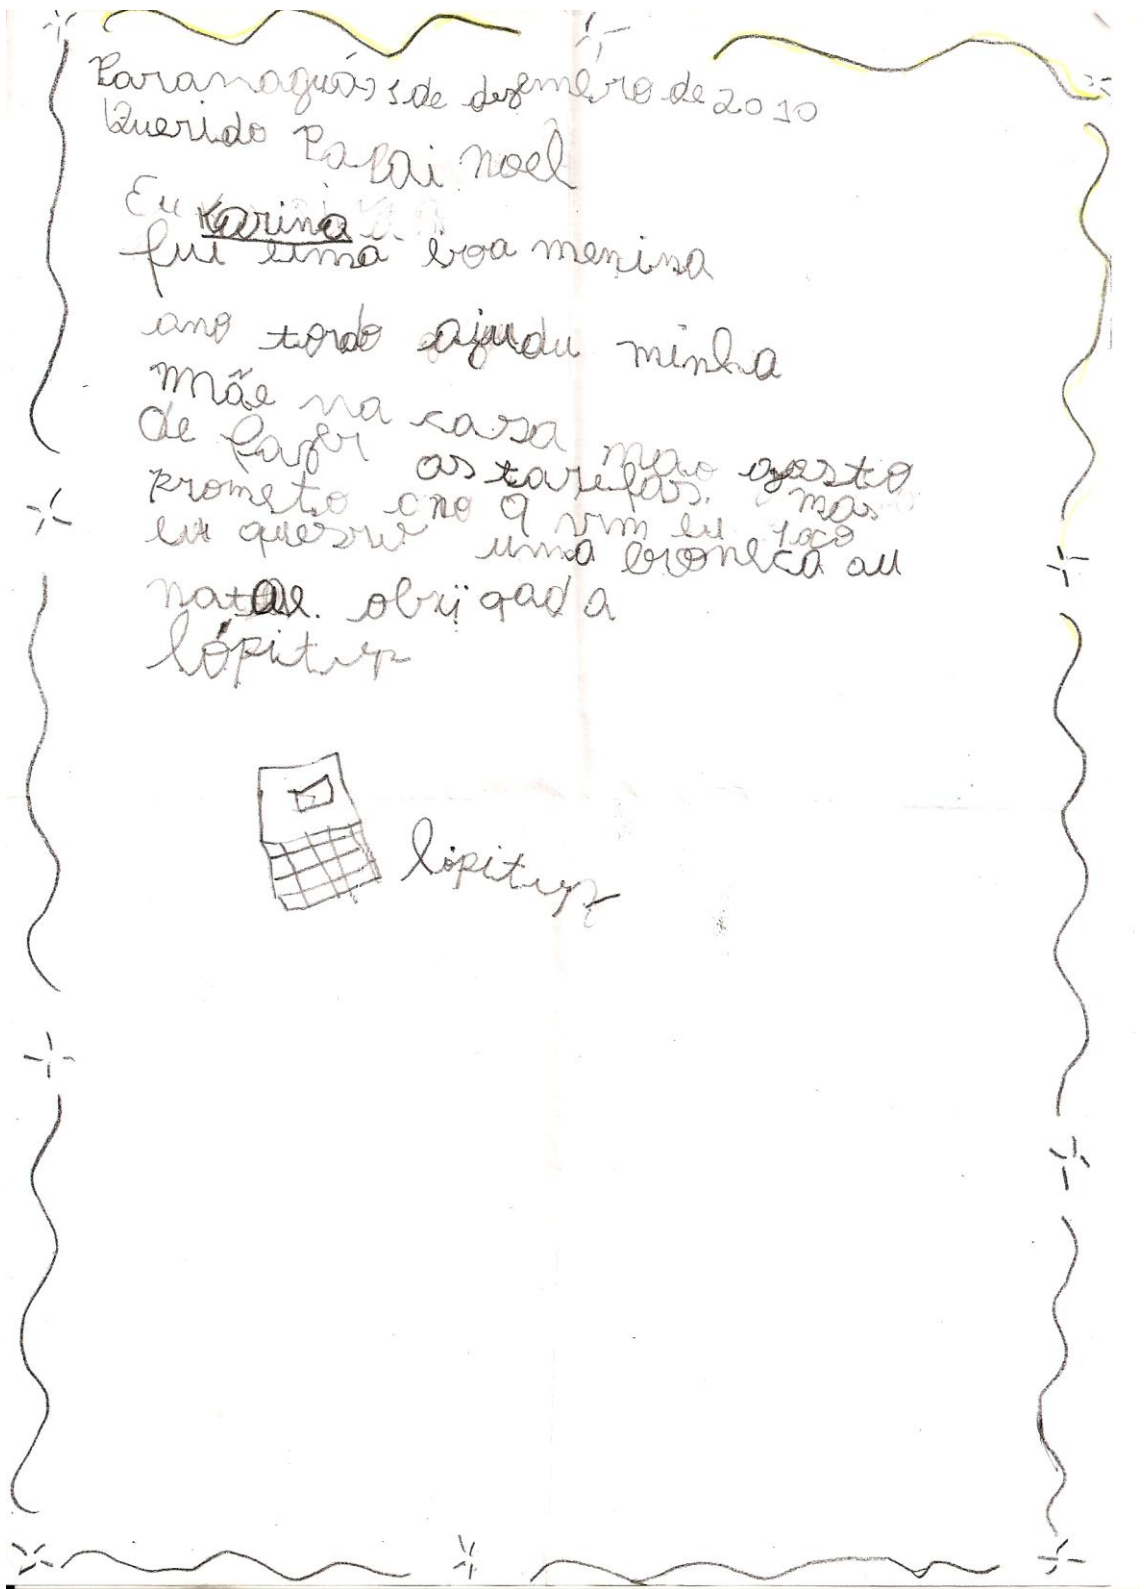 Paranaguá, 1 de dezembro de 2010
Querido Papai noel
Eu Karina
fui uma boa menina
ano tordo ajudu minha
mãe na casa não gosto
de fazer as tarefas. mas
prometo ano q vim eu faço
eu quero uma boneca au
natal. obrigada
lópitop
lópitop